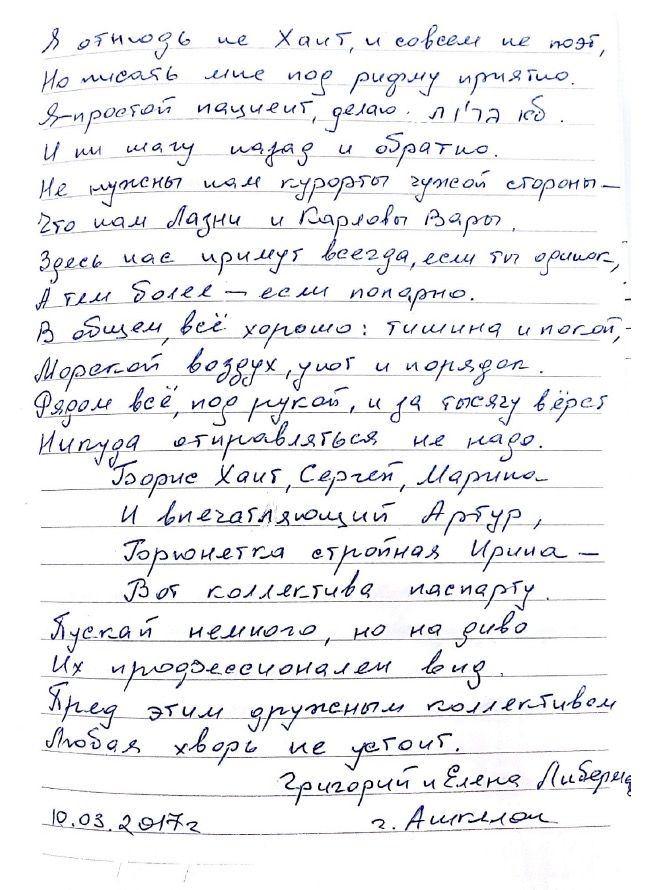 Я отнюдь не Хаит, и совсем не поэт,
Но писать мне под рифму приятно.
Я-простой пациент, делаю. בר'ות кб.
И ни шагу назад и обратно.
Не нужны нам курорты чужой стороны –
Что нам Лазни и Карловы Вары,
Здесь нас примут всегда, если ты одинок,
А тем более – если попарно.
В общем, всё хорошо: тишина и покой,
Морской воздух, уют и порядок.
Рядом всё, под рукой, и за тысячу вёрст
Никуда отправляться не надо.
Борис Хаит, Сергей, Марина
И впечатляющий Артур,
Брюнетка стройная Ирина –
Вот коллектива паспарту.
Пускай немного, но на диво
Их профессионален вид.
Пред этим дружным коллективом
Любая хворь не устоит.
Григорий и Елена
10.03.2017г г. Ашкелон